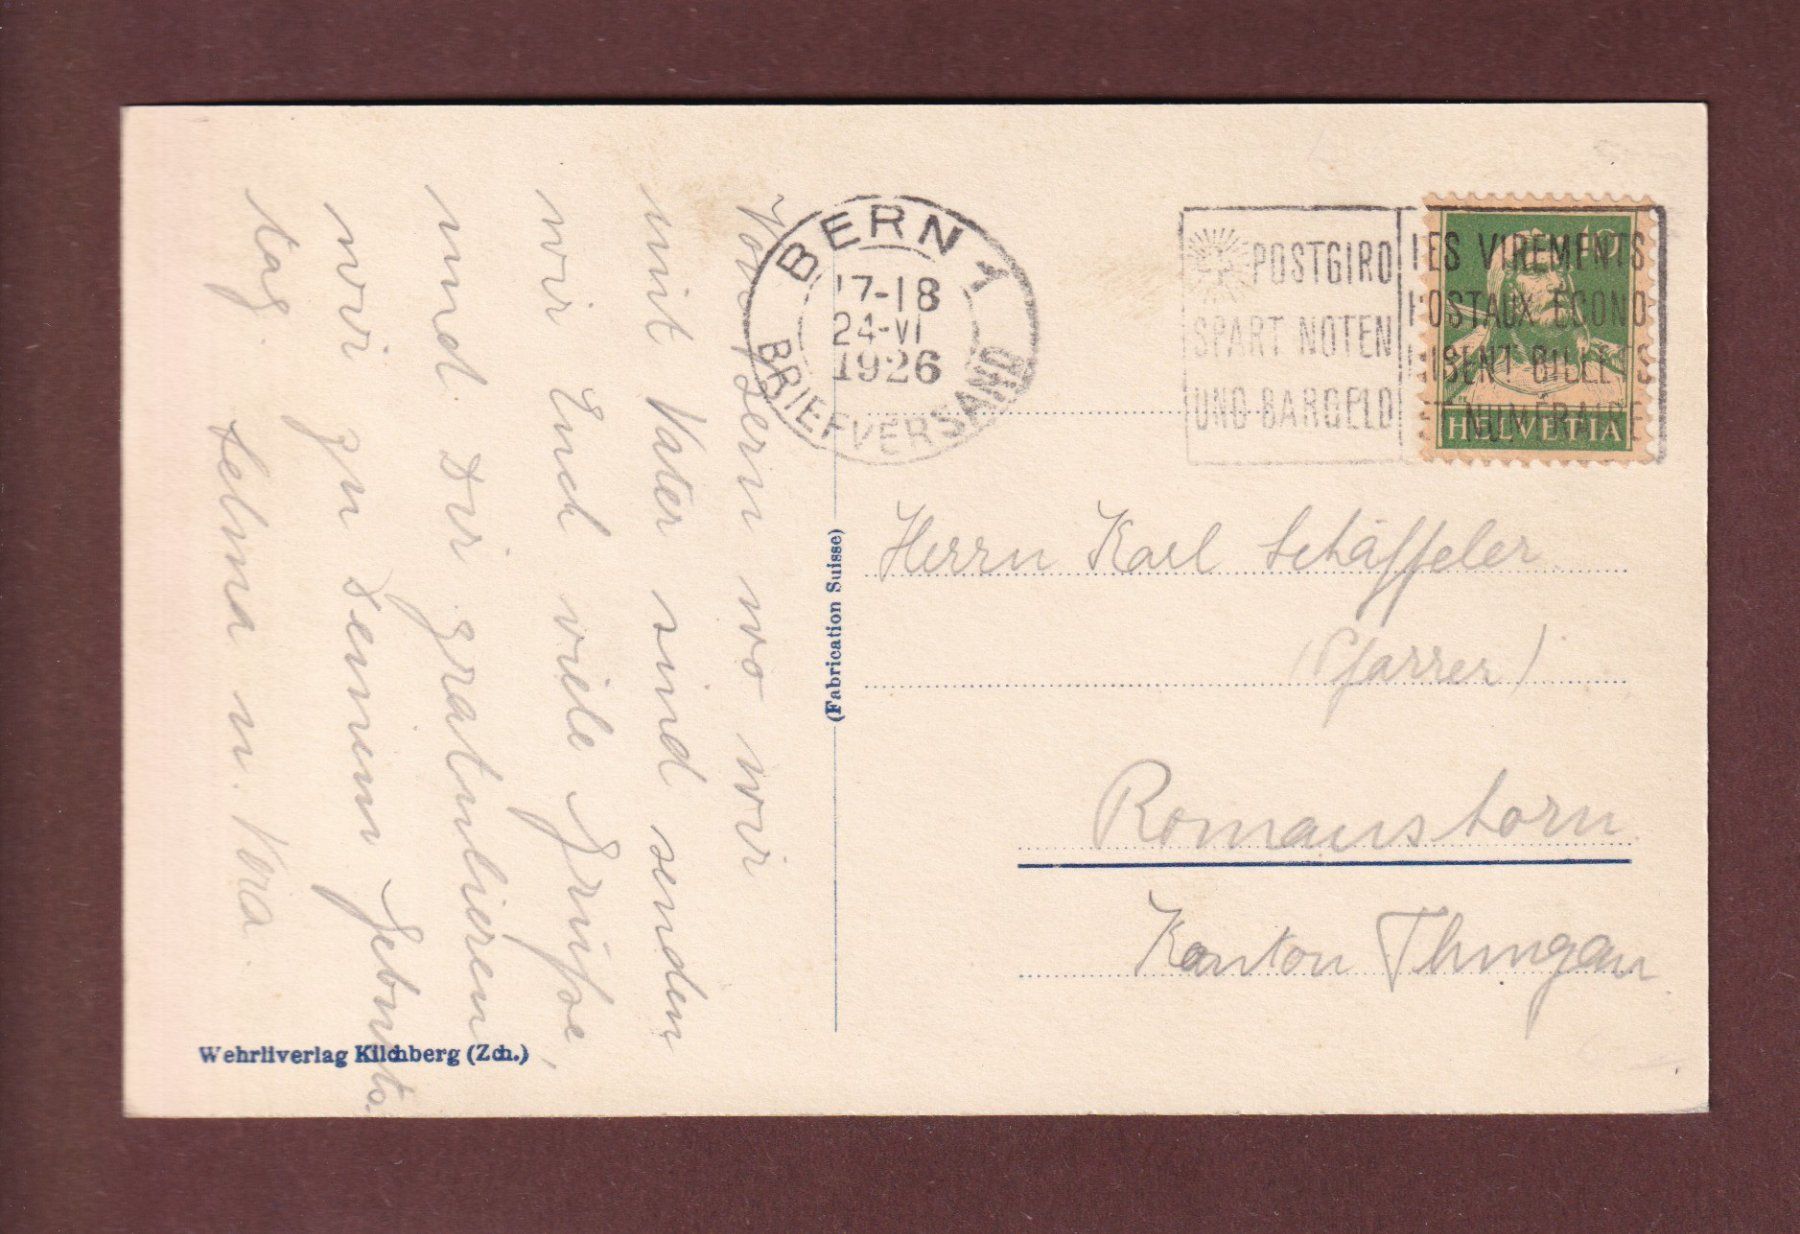 Von Bern wo wir
mit Vater sind senden
wir Euch viele Grüsse,
und Dir gratulieren
wir zu Deinem Geburts-
tag. Selma u. Vera.
BERN 1
17-18
24-VI
1926
BRIEFVERSAND
POSTGIRO
SPART NOTEN
UND BARGELD
LES VIREMENTS
POSTAUX ECONO
MISENT BILLETS
ET NUMERAIRE
10
HELVETIA
(Fabrication Suisse)
Herrn Karl Schäffeler
(Pfarrer)
Romanshorn
Kanton Thurgau
Wehrliverlag Kilchberg (Zch.)